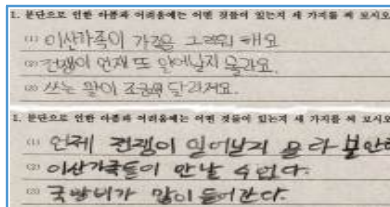 1. 분단으로 인한 아픔과 어려움에는 어떤 것들이 있는지 세 가지를 써 보시오
(1) 이산가족이 가족을 그리워 해요
(2) 전쟁이 언제 또 일어날지 몰라요.
(3) 쓰는 말이 조금씩 달라져요.
1. 분단으로 인한 아픔과 어려움에는 어떤 것들이 있는지 세 가지를 써 보시오
(1) 언제 전쟁이 일어날지 몰라 불안하
(2) 이산가족들이 만날 수 없다.
(3) 국방비가 많이 들어간다.